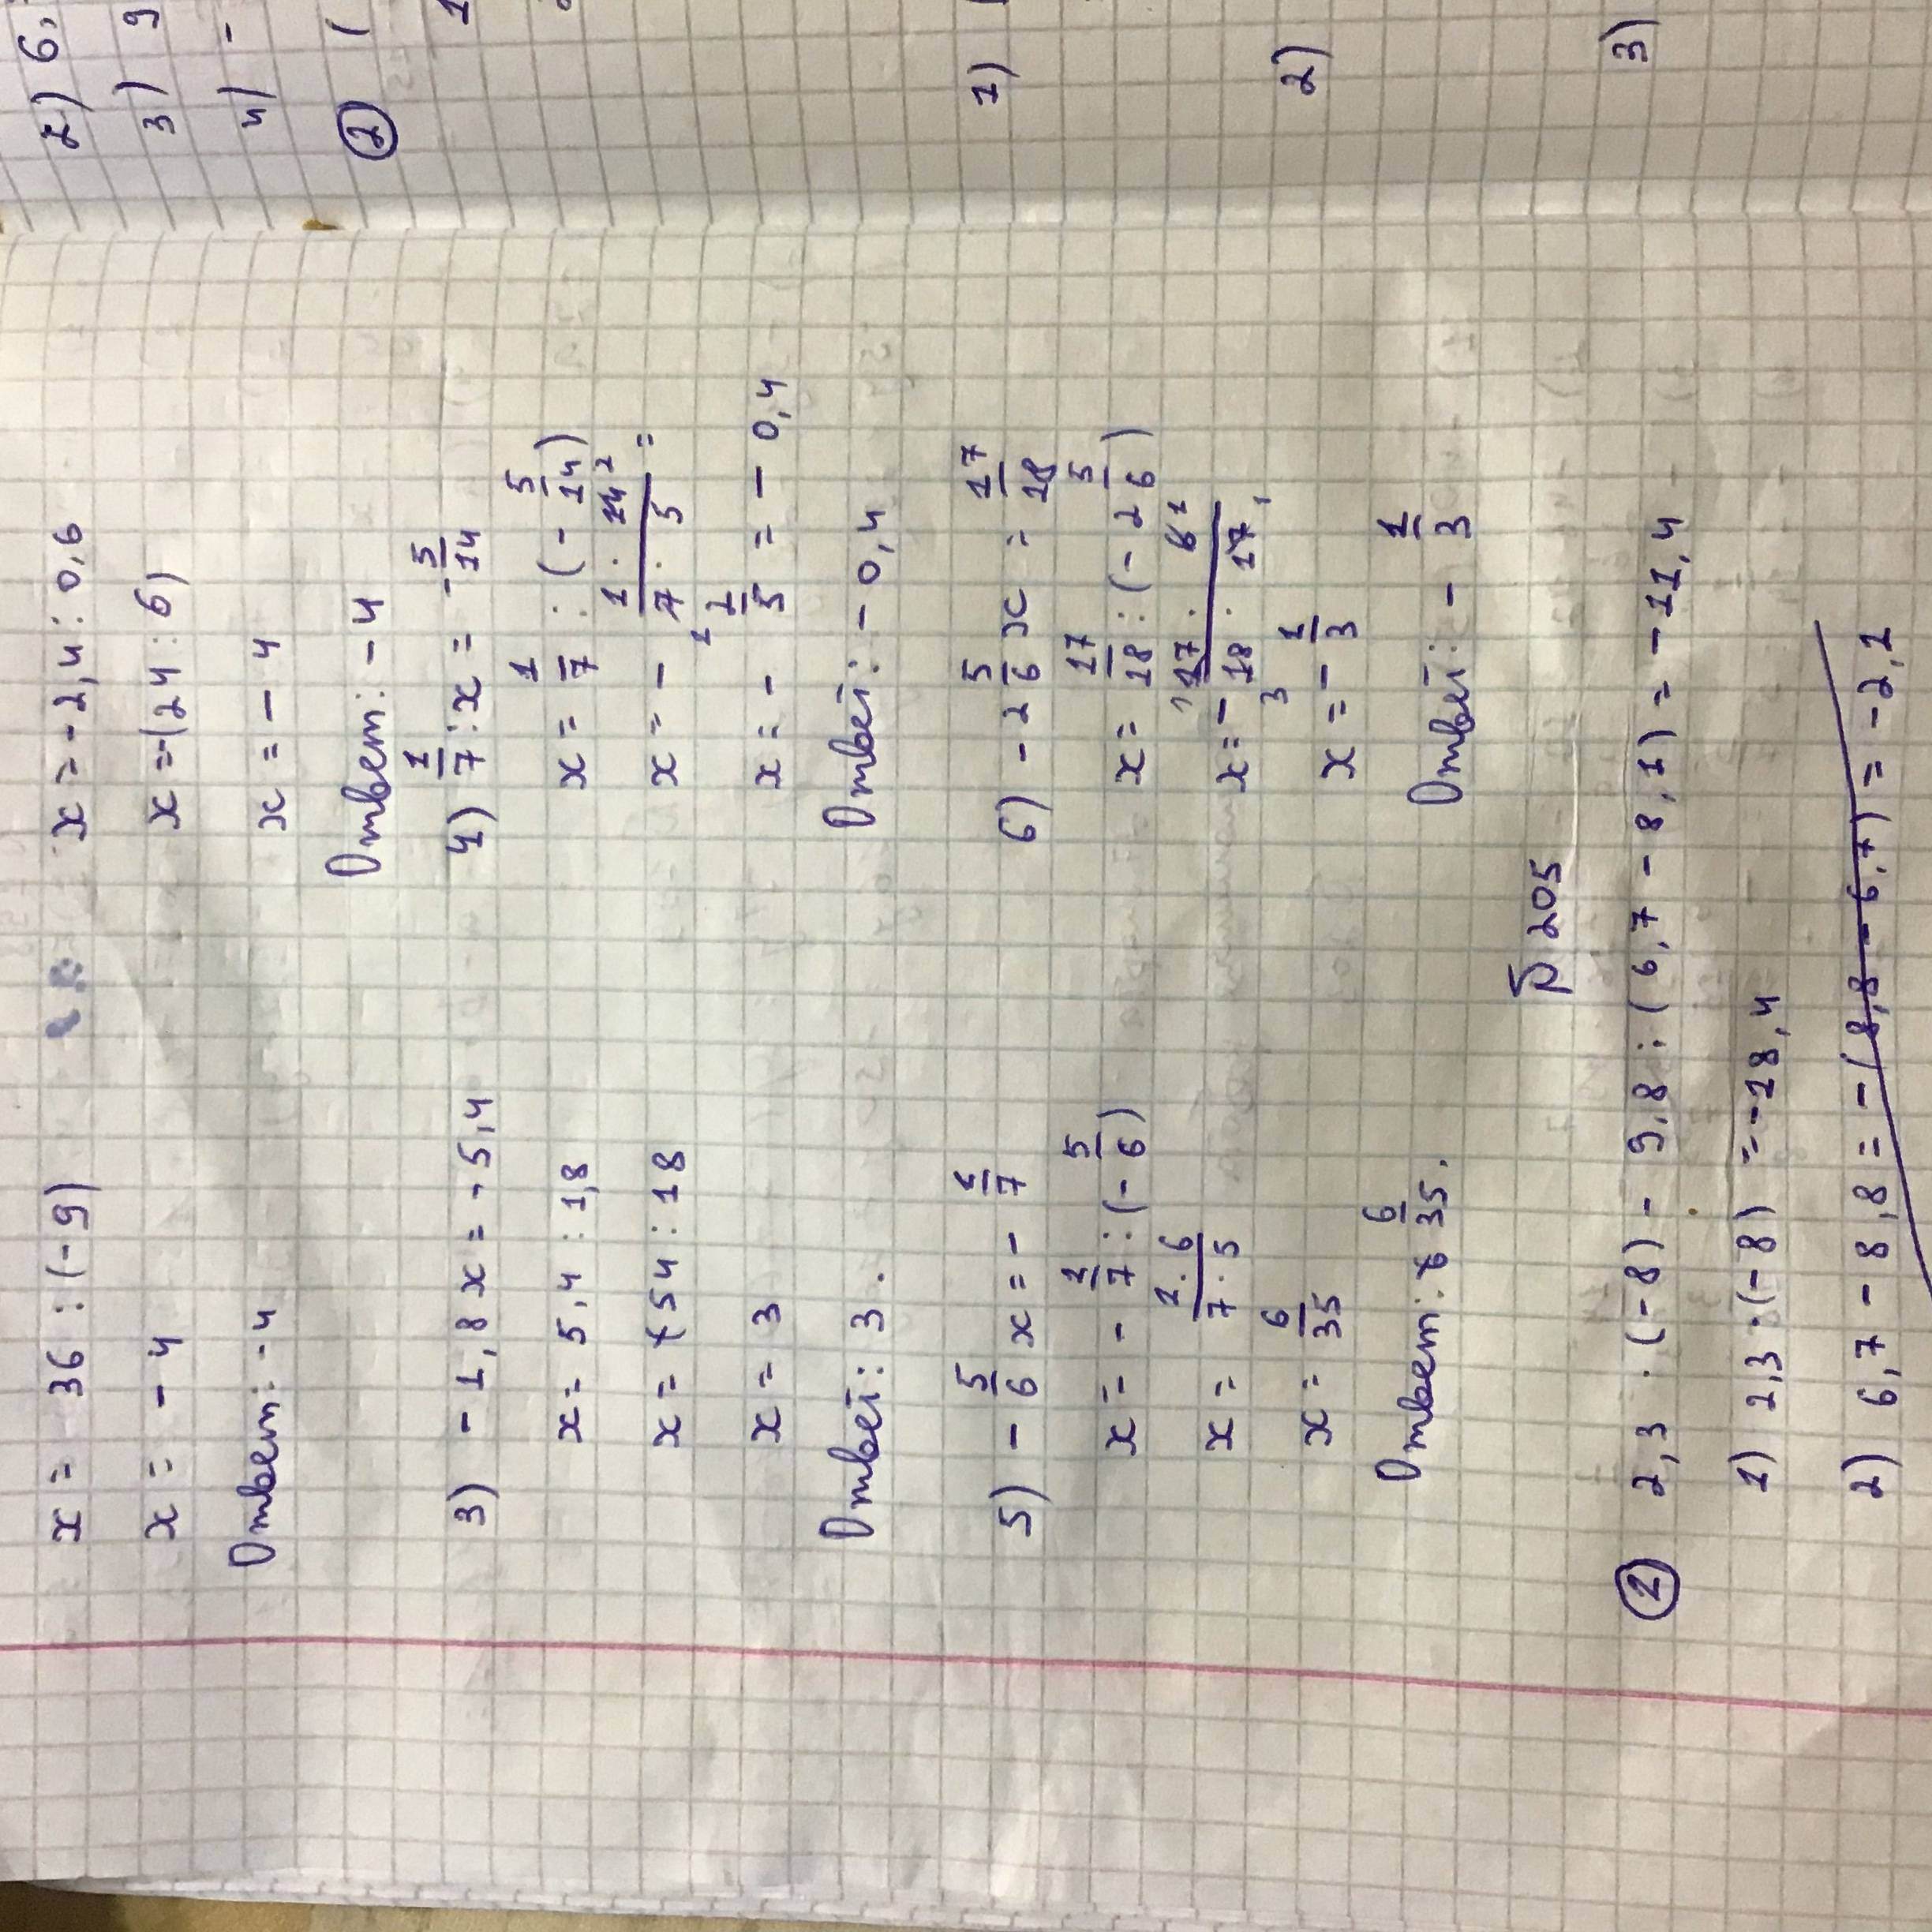 x = 36 : (-9)
x = - 4
Ответ: -4
x = -2,4 : 0,6
x = -(24 : 6)
x = - 4
Ответ: -4
3) - 1,8 x = -5,4
x = 5,4 : 1,8
x = 54 : 18
x = 3
Ответ: 3.
4) 1/7 : x = -5/14
x = 1/7 : (- 5/14)
x = - 1 · 14 2 / 7 · 5 =
1
x = - 2/5 = - 0,4
Ответ: - 0,4
5) - 5/6 x = - 1/7
x = - 1/7 : (- 5/6)
x = 1 · 6 / 7 · 5
x = 6/35
Ответ: 6/35.
6) - 2 5/6 x = 17/18
x = 17/18 : (- 2 5/6)
x = - 1 17 · 6 1 / 18 · 17 1
3
x = - 1/3
Ответ: - 1/3
P 205
① 2,3 · (-8) - 9,8 : (6,7 - 8,1) = -11,4
1) 2,3 · (-8) = -18,4
2) 6,7 - 8,8 = -(8,8 - 6,7) = -2,1
2) 6,
3) 9
4) -
② (
1
1)
2)
3)